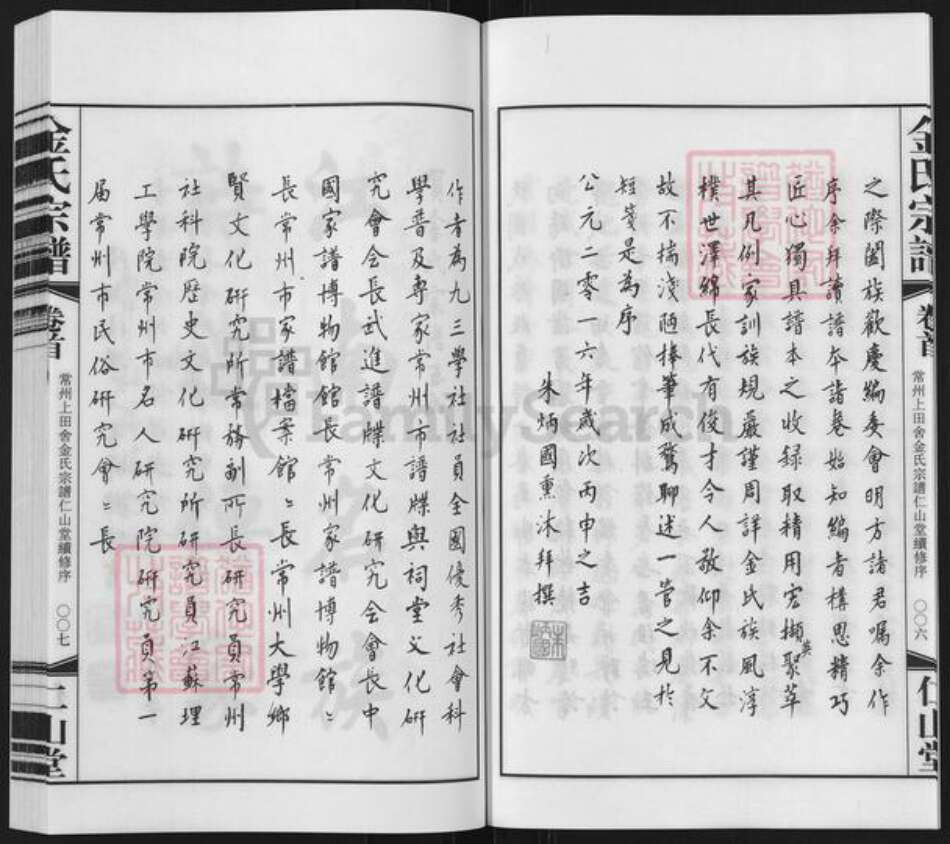 之際闔族歡慶編委會明方諸君囑余作
序余拜讀譜本諧卷始知編者構思精巧
匠心獨具譜本之收録取精用宏擷英聚萃
其凡例家訓族規嚴謹周詳金氏族風淳
樸世澤綿長代有俊才令人敬仰余不文
故不揣淺陋捧筆成聊述一管之見於
短箋是為序
公元二零一六年歲次丙申之吉
朱炳國熏沐拜撰
金氏宗譜
卷首
常州上田舍金氏宗譜仁山堂續修序
〇〇六
仁山堂
作者為九三學社社員全國優秀社會科
學普及專家常州市譜牒與祠堂文化研
究會會長武進譜牒文化研究会會長中
國家譜博物館館長常州家譜博物館〻
長常州市家譜檔案館〻長常州大學鄉
賢文化研究所常務副所長研究員常州
社科院歷史文化研究所研究員江蘇理
工學院常州市名人研究院研究員第一
届常州市民俗研究會〻長
金氏宗譜
卷首
常州上田舍金氏宗譜仁山堂續修序
〇〇七
仁山堂
FamilySearch